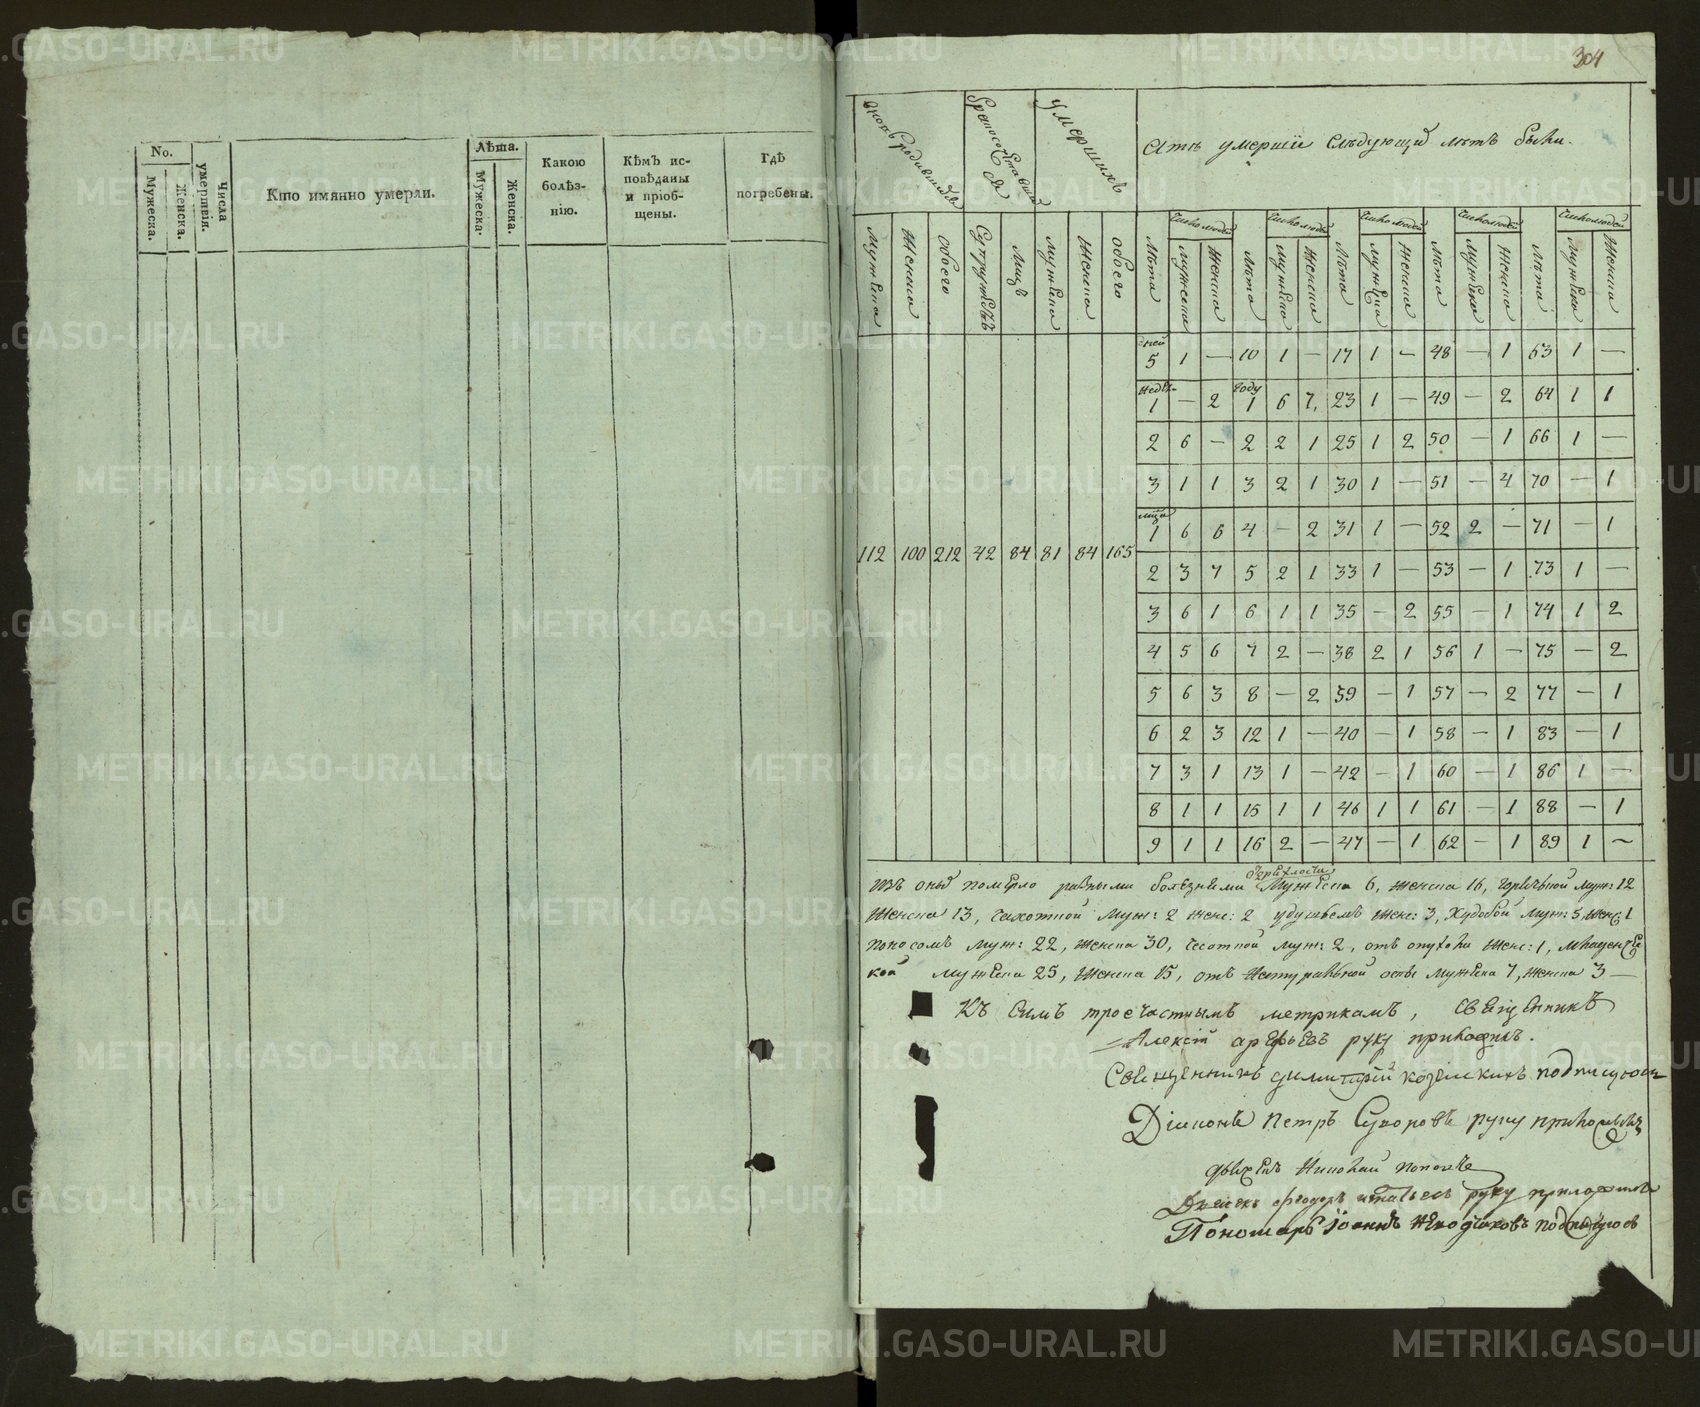 No.
Мужеска.
Женска.
Числа умертвія.
Кто имянно умерли.
Лѣта.
Мужеска.
Женска.
Какою
болѣз-
нію.
Кѣмъ ис-
повѣданы
и пріоб-
щены.
Гдѣ
погребены.
304
Умершихъ
умершіи слѣдующихъ лѣтъ были.
Мужеска
Женска
обоего
Супружествъ
Лицъ
Мужеска
Женска
обоего
Лѣта Мужеска Женска Лѣта Мужеска Женска Лѣта Мужеска Женска Лѣта Мужеска Женска Лѣта Мужеска Женска
дней
5 1 — 10 1 — 17 1 — 48 — 1 63 1 —
недѣ. году
1 — 2 1 6 7, 23 1 — 49 — 2 64 1 1
2 6 — 2 2 1 25 1 2 50 — 1 66 1 —
3 1 1 3 2 1 30 1 — 51 — 4 70 — 1
1 6 6 4 — 2 31 1 — 52 2 — 71 — 1
112 100 212 42 84 81 84 165
2 3 7 5 2 1 33 1 — 53 — 1 73 1 —
3 6 1 6 1 1 35 — 2 55 — 1 74 1 2
4 5 6 7 2 — 38 2 1 56 1 — 75 — 2
5 6 3 8 — 2 39 — 1 57 — 2 77 — 1
6 2 3 12 1 — 40 — 1 58 — 1 83 — 1
7 3 1 13 1 — 42 — 1 60 — 1 86 1 —
8 1 1 15 1 1 46 1 1 61 — 1 88 — 1
9 1 1 16 2 — 47 — 1 62 — 1 89 1 —
Изъ оныхъ померло разными болезнеми Мужеска 6, женска 16, горячьной муж: 12
Женска 13, чахотной Муж: 2 женс: 2 удушьемъ женс: 3, Худобой муж: 5, женс: 1
поносомъ муж: 22, женска 30, чесотной муж: 2, отъ опухоли женс: 1, младенче
кой мужеска 25, женска 15, отъ натуральной оспы мужеска 7, женска 3 —
Къ симъ троечастнымъ метрикамъ, священникъ
Алексій Арефьевъ руку приложилъ.
Священникъ Димитрій подписуюсь
Діаконъ Петръ Суворовъ руку приложилъ
Николай Поповъ
Феодоръ руку приложилъ
Пономарь Іоаннъ подписуюсь
METRIKI.GASO-URAL.RU